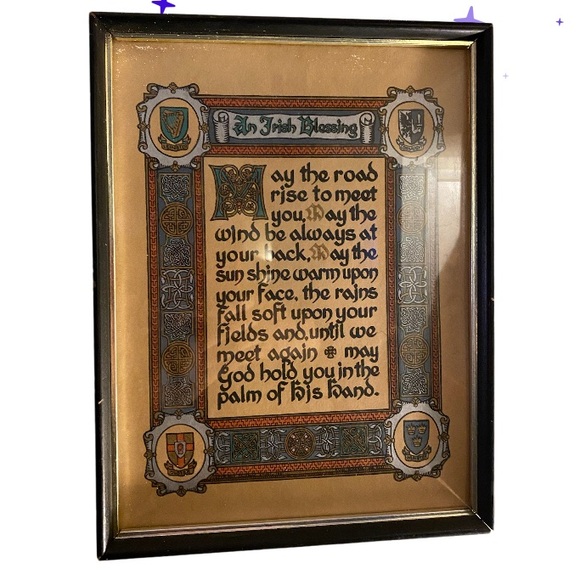 An Irish Blessing
May the road
rise to meet
you, May the
wind be always at
your back, May the
sun shine warm upon
your face, the rains
fall soft upon your
fields and, until we
meet again may
God hold you in the
palm of his hand.